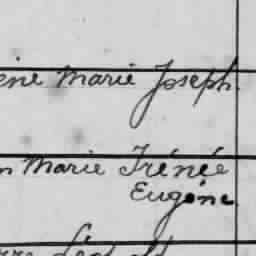 ene Marie Joseph
n Marie Irénée
Eugène